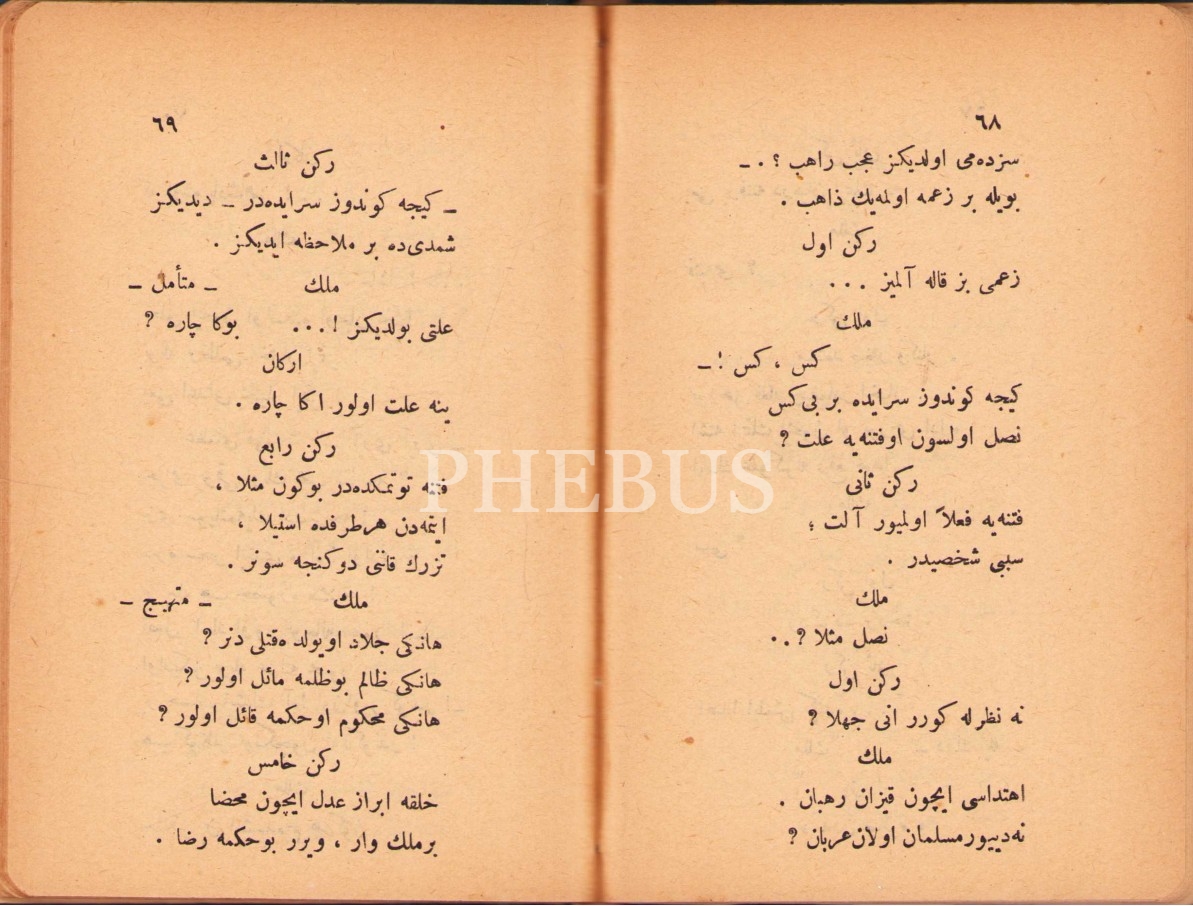 ٦٨
سزده‌می اولدیکز عجب راهب ؟ . ــ
بویله بر زعمه اولمه‌یك ذاهب .
ركن اول
زعمی بز قاله آلمیز . . .
ملك
كس ، كس ! ــ
كیجه كوندوز سرایده بر بی‌كس
نصل اولسون اوفتنه‌یه علت ؟
ركن ثانی
فتنه‌یه فعلاً اولمیور آلت ؛
سببی شخصیدر .
ملك
نصل مثلا ؟ . .
ركن اول
نه نظرله كورر انی جهلا ؟
ملك
اهتداسی ایچون قیزان رهبان .
نه‌دییور مسلمان اولان عربان ؟
٦٩
ركن ثالث
ــ كیجه كوندوز سرایده‌در ــ دیدیكز
شمدی‌ده بر ملاحظه ایدیكز .
ملك ــ متأمل ــ
علتی بولدیكز ! . . . بوكا چاره ؟
اركان
ینه علت اولور اكا چاره .
ركن رابع
فتنه توتمكده‌در بوكون مثلا ،
ایتمه‌دن هرطرفده استیلا ،
تزرك قانی دوكنجه سونر .
ملك ــ متهیج ــ
هانكی جلاد اویولده قتلی دنر ؟
هانكی ظالم بوظلمه مائل اولور ؟
هانكی محكوم اوحكمه قائل اولور ؟
ركن خامس
خلقه ابراز عدل ایچون محضا
برملك وار ، ویرر بوحكمه رضا .
PHEBUS